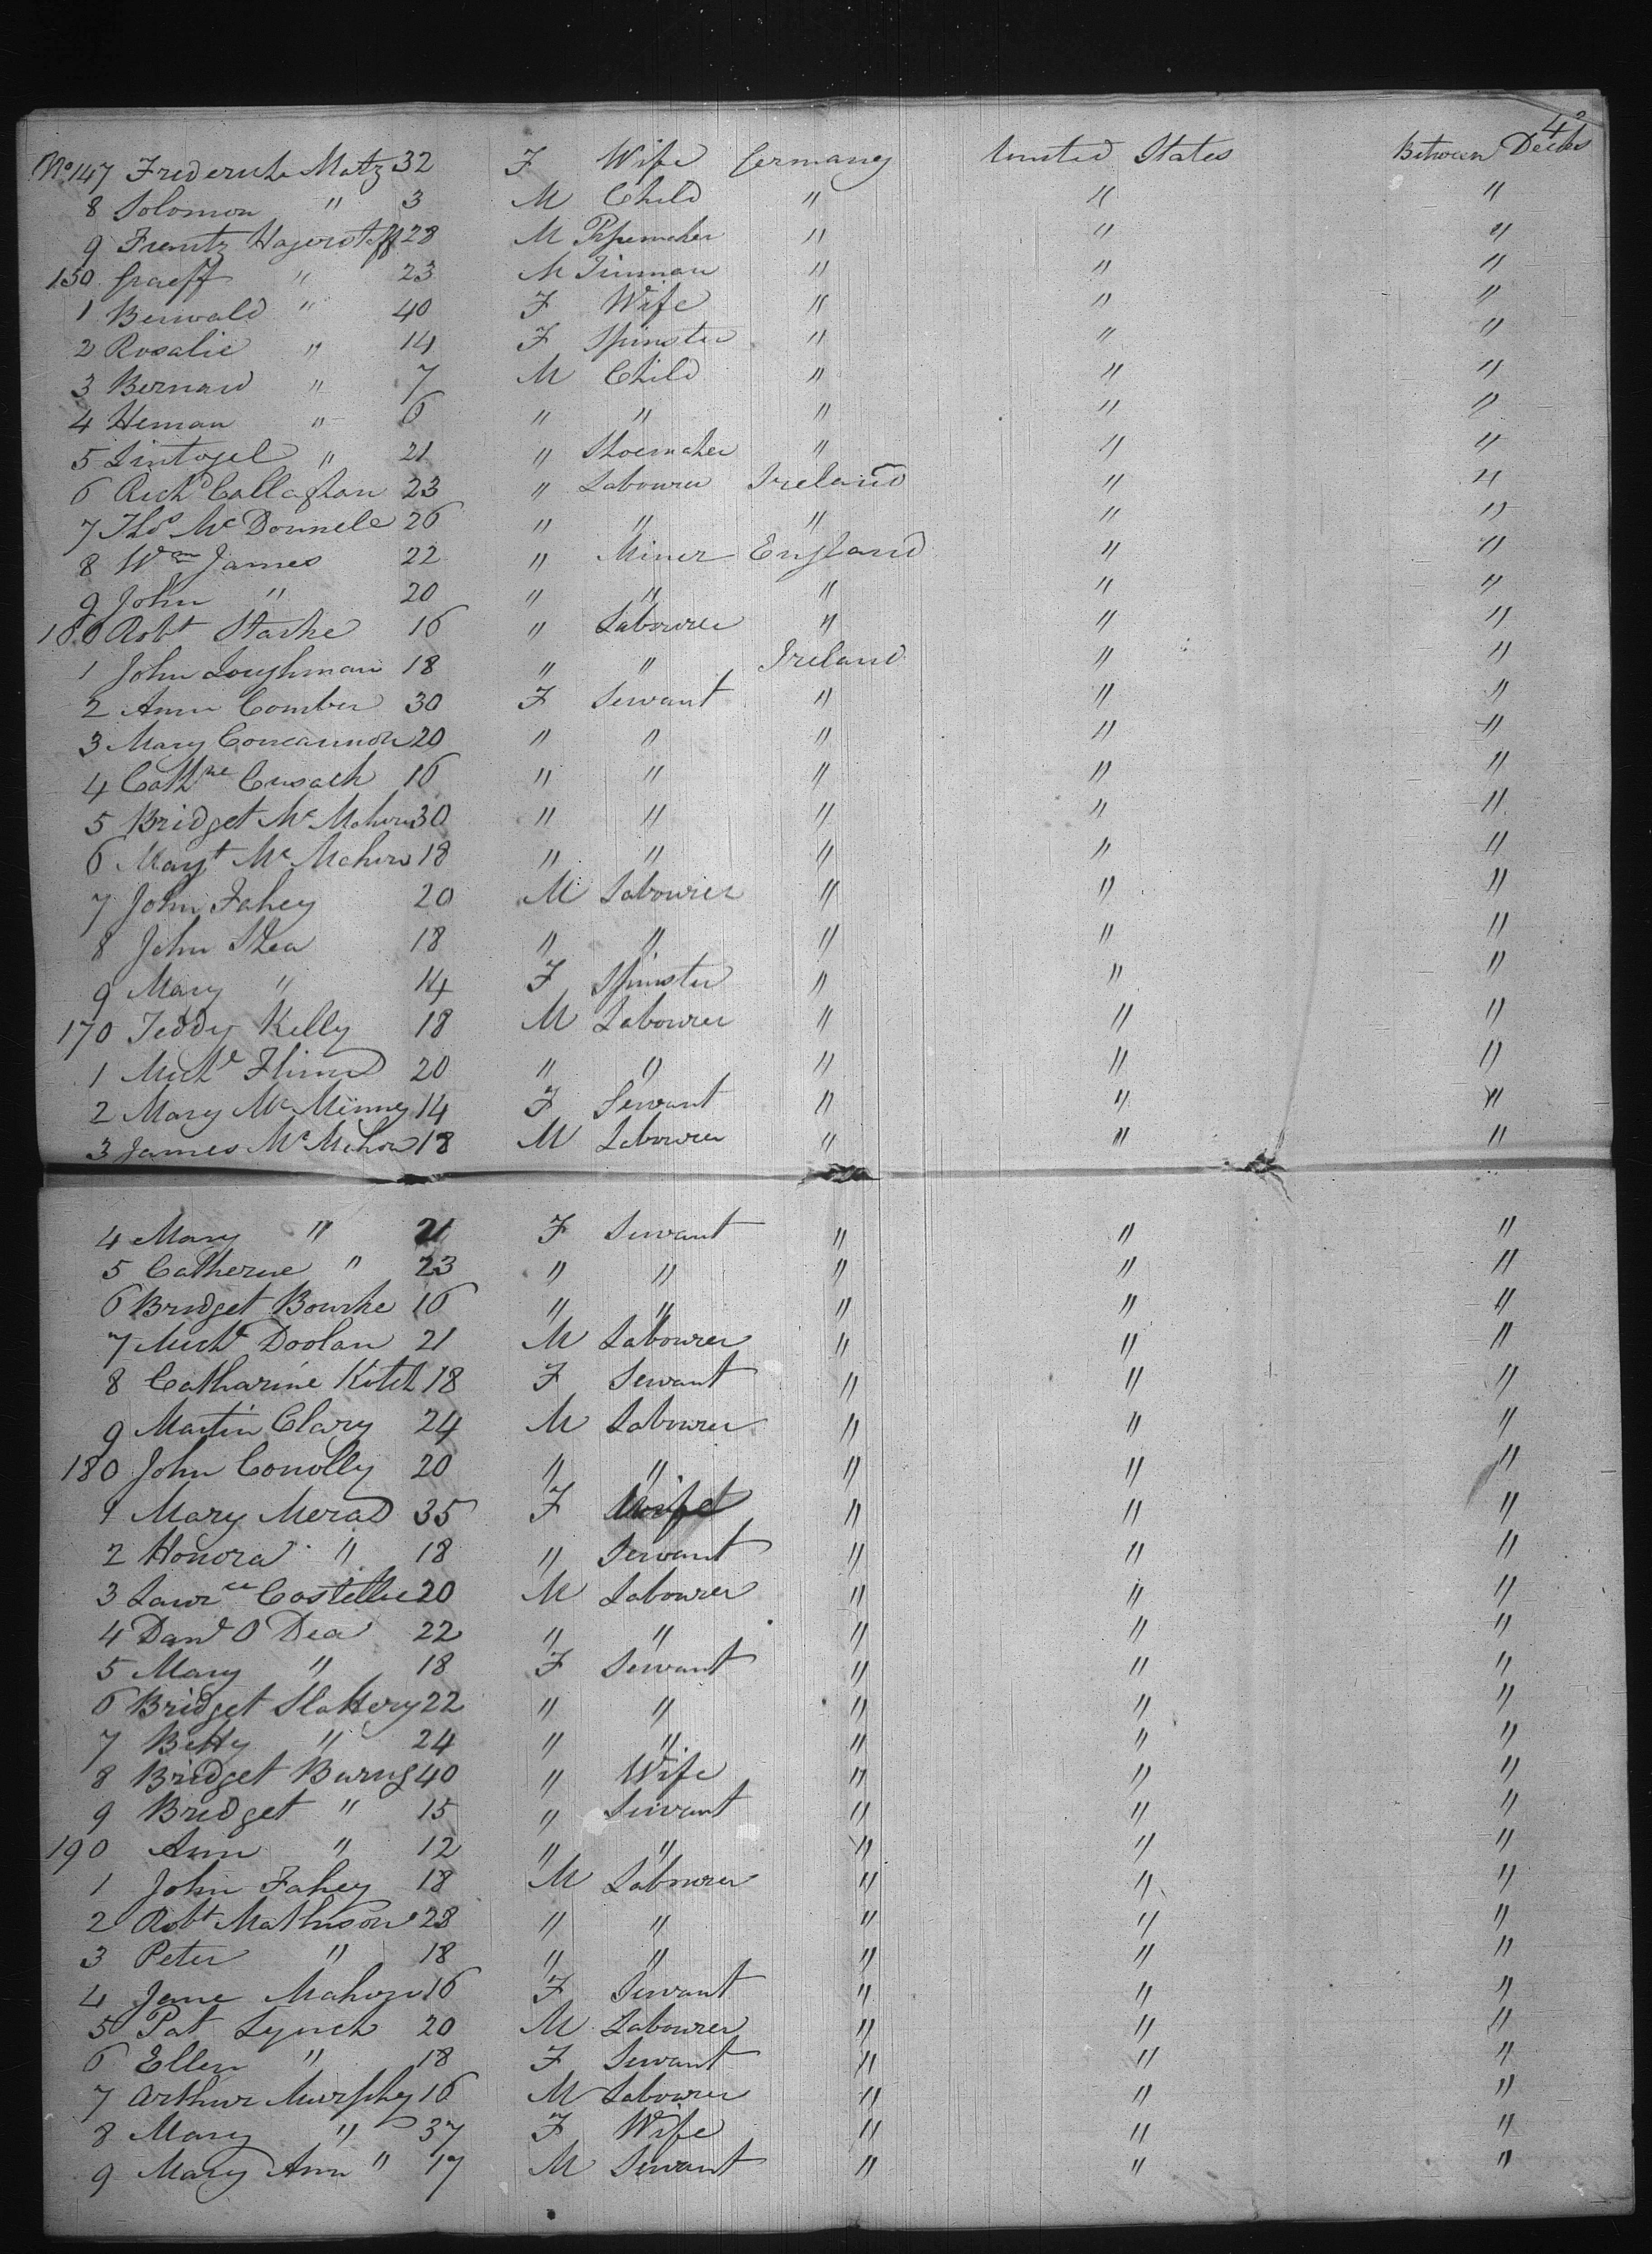 4
No 147 Frederick Motz 32 F Wife Germany United States Between Decks
8 Solomon " 3 M Child " " "
9 Frentz Hagerstoff 28 M Pipemaker " " "
150 Graeff " 23 M Tinman " " "
1 Berwald " 40 F Wife " " "
2 Rosalie " 14 F Spinster " " "
3 Bernard " 7 M Child " " "
4 Heman " 6 " " " " "
5 Lintogel " 21 " Shoemaker " " "
6 Richd Callaghan 23 " Labourer Ireland " "
7 Thos McDonnele 26 " " " " "
8 Wm James 22 " Miner England " "
9 John " 20 " " " " "
160 Robt Starke 16 " Labourer " " "
1 John Loughman 18 " " Ireland " "
2 Ann Comber 30 F Servant " " "
3 Mary Concannon 20 " " " " "
4 Cathne Cusack 16 " " " " "
5 Bridget McMahon 30 " " " " "
6 Margt McMahon 18 " " " " "
7 John Fahey 20 M Labourer " " "
8 John Shea 18 " " " " "
9 Mary " 14 F Spinster " " "
170 Teddy Kelly 18 M Labourer " " "
1 Michl Flinn 20 " " " " "
2 Mary McMinney 14 F Servant " " "
3 James McMahon 18 M Labourer " " "
4 Mary " 21 F Servant " " "
5 Catherine " 23 " " " " "
6 Bridget Bourke 16 " " " " "
7 Michl Doolan 21 M Labourer " " "
8 Catharine Kitch 18 F Servant " " "
9 Martin Clary 24 M Labourer " " "
180 John Conolly 20 " " " " "
1 Mary Merad 35 F Wife " " "
2 Honora " 18 " Servant " " "
3 Lawrce Costelloe 20 M Labourer " " "
4 Danl O Dea 22 " " " " "
5 Mary " 18 F Servant " " "
6 Bridget Slattery 22 " " " " "
7 Betty " 24 " " " " "
8 Bridget Burns 40 " Wife " " "
9 Bridget " 15 " Servant " " "
190 Ann " 12 " " " " "
1 John Fahey 18 M Labourer " " "
2 Robt Mathison 28 " " " " "
3 Peter " 18 " " " " "
4 Jane Mahon 16 F Servant " " "
5 Pat Lynch 20 M Labourer " " "
6 Ellen " 18 F Servant " " "
7 Arthur Murphy 16 M Labourer " " "
8 Mary " 37 F Wife " " "
9 Mary Ann " 17 M Servant " " "